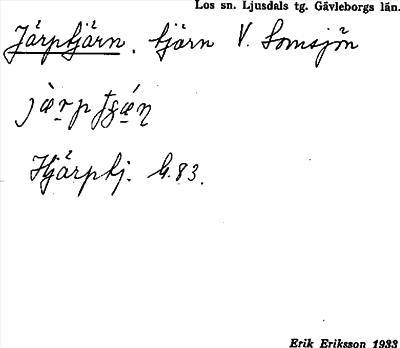 Los sn. Ljusdals tg. Gävleborgs län.
Järptjärn. tjärn V. Lomsjön
Hjärptj. G. 83.
Erik Eriksson 1933